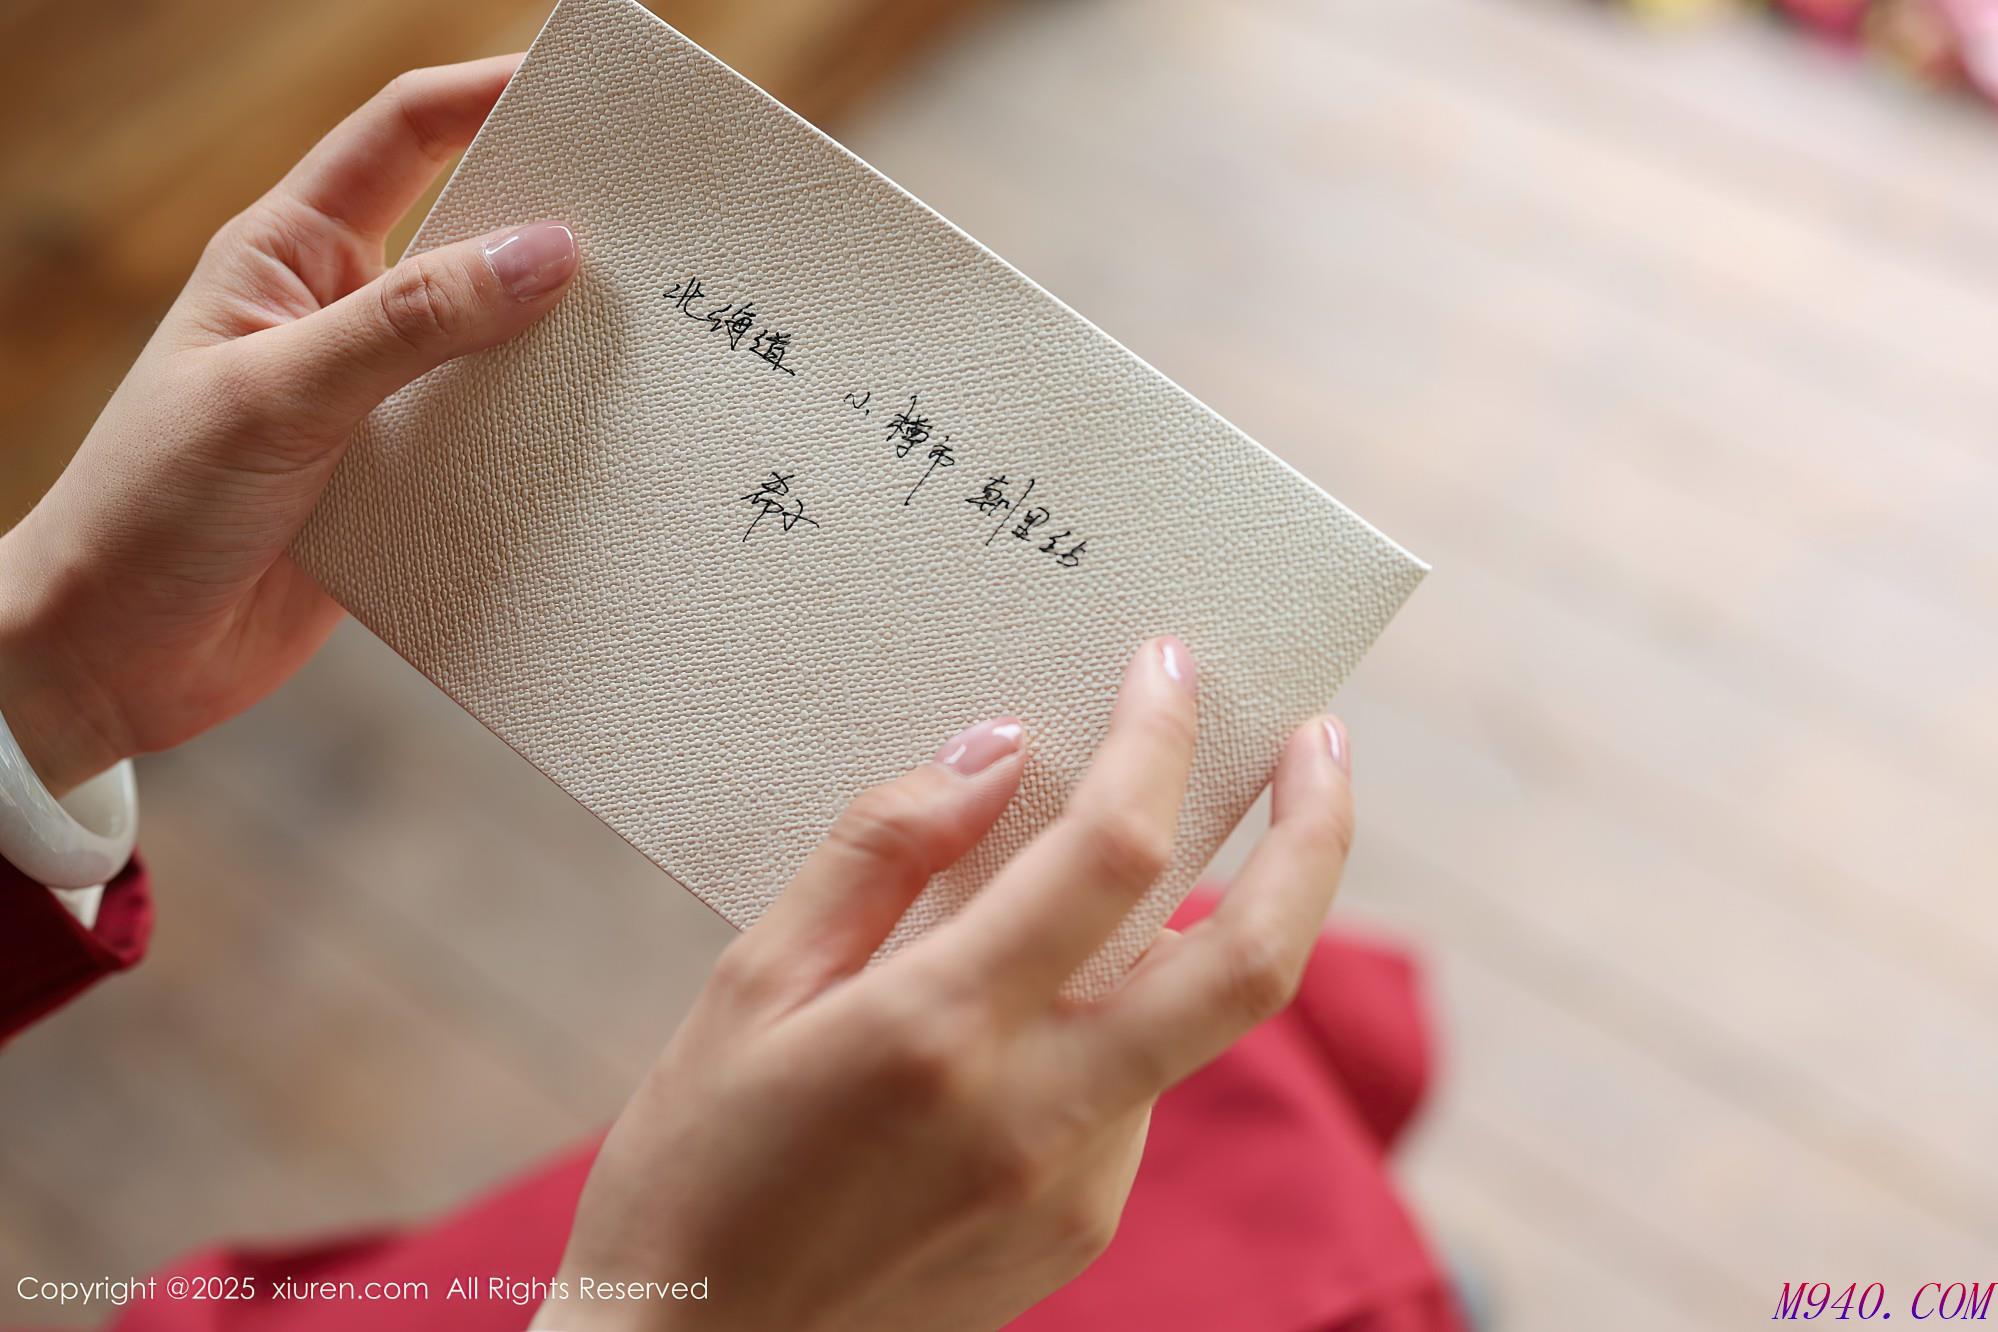 北海道 小樽市 朝里站
希子
Copyright @2025 xiuren.com All Rights Reserved
M940.COM